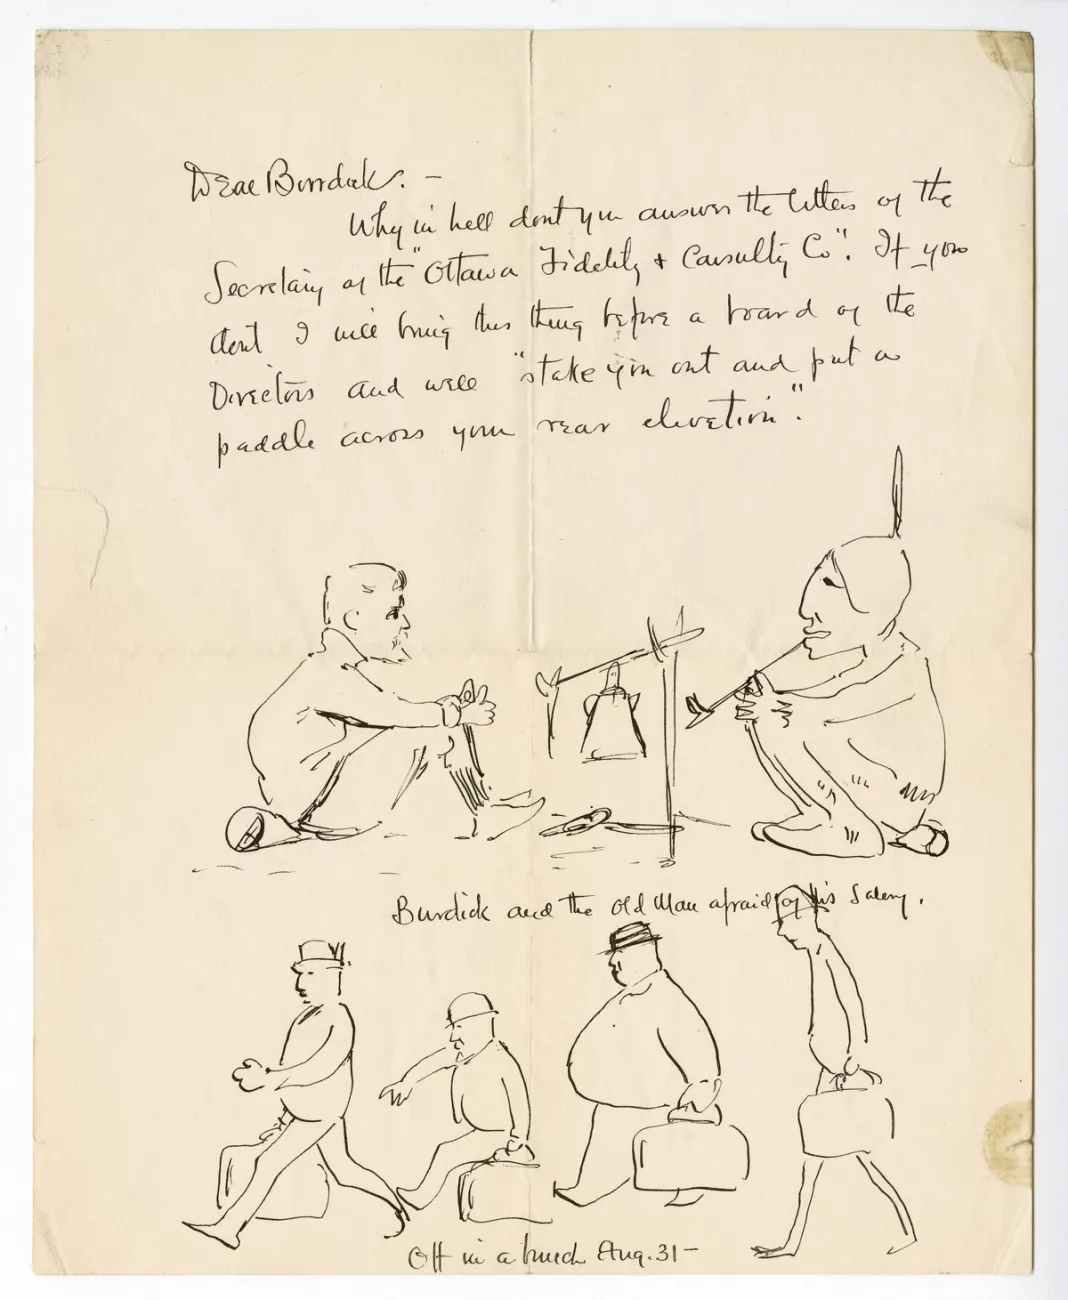 Dear Burdick. –
Why in hell dont you answer the letters of the
Secretary of the "Ottawa Fidelity + Causulty Co". If you
dont I will bring this thing before a board of the
Directors and will "stake you out and put a
paddle across your rear elevation".
Burdick and the old Man afraid of his Salery.
Off in a bunch Aug. 31 –